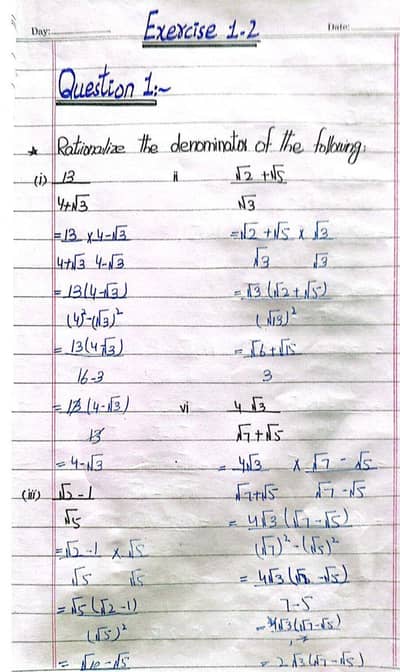 Day: Date:
Exercise 1.2
Question 1:~
★ Rationalize the denominator of the following:
(i) 13
4+√3
= 13 x 4-√3
4+√3 4-√3
= 13(4-√3)
(4)²-(√3)²
= 13(4-√3)
16-3
= 13(4-√3)
13
= 4-√3
(iii) √2-1
√5
= √2-1 x √5
√5 √5
= √5(√2-1)
(√5)²
= √10-√5
ii √2+√5
√3
= √2+√5 x √3
√3 √3
= √3(√2+√5)
(√3)²
= √6+√15
3
vi 4√3
√7+√5
= 4√3 x √7-√5
√7+√5 √7-√5
= 4√3(√7-√5)
(√7)²-(√5)²
= 4√3(√7-√5)
7-5
= 4√3(√7-√5)
= 2√3(√7-√5)